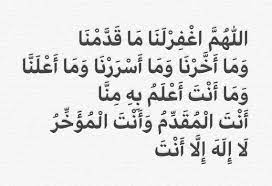 اللّٰهُمَّ اغْفِرْلَنَا مَا قَدَّمْنَا
وَمَا أَخَّرْنَا وَمَا أَسْرَرْنَا وَمَا أَعْلَنَّا
وَمَا أَنْتَ أَعْلَمُ بِهِ مِنَّا
أَنْتَ الْمُقَدِّمُ وَأَنْتَ الْمُؤَخِّرُ
لَا إِلَهَ إِلَّا أَنْتَ